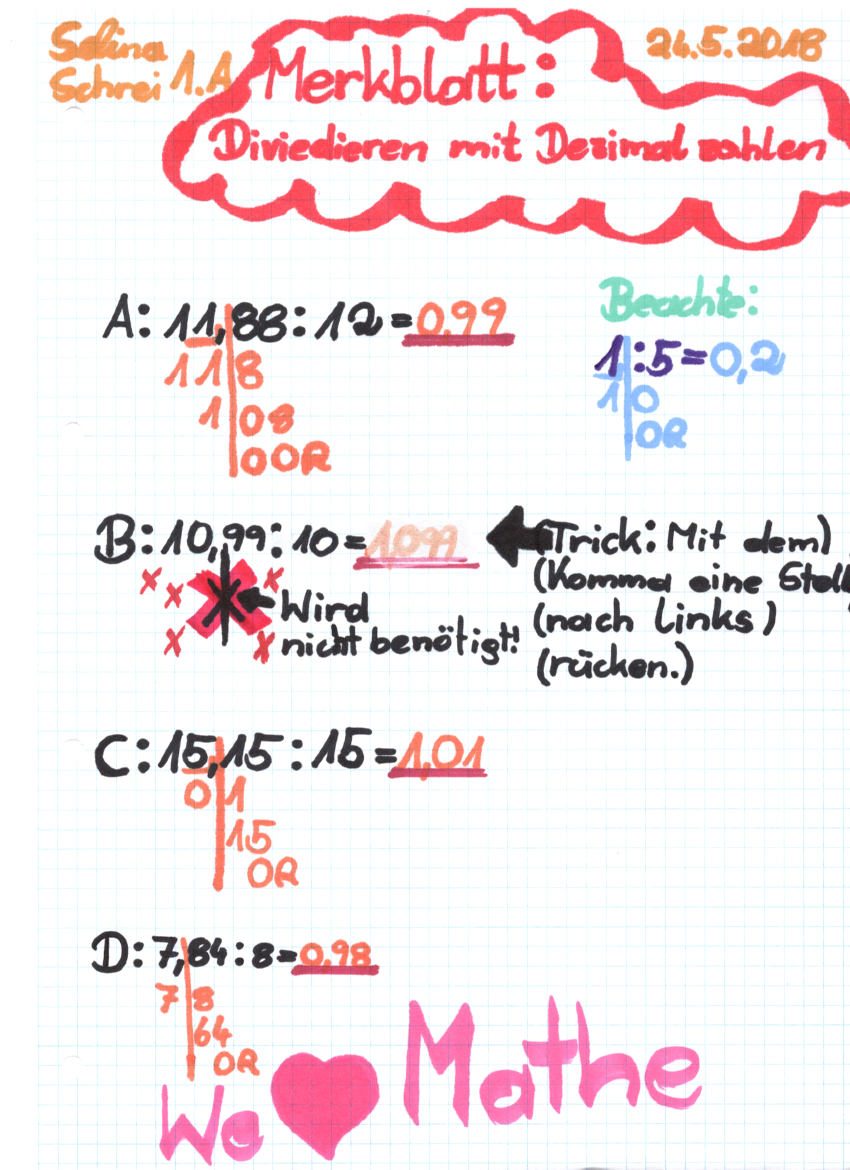 Selina
Schrei 1.A
24.5.2018
Merkblatt:
Diviedieren mit Dezimalzahlen
A: 11,88 : 12 = 0,99
118
108
00R
Beachte:
1 : 5 = 0,2
10
0R
B: 10,99 : 10 = 1,099
Wird
nicht benötigt!
(Trick: Mit dem)
(Komma eine Stell
(nach links)
(rücken.)
C: 15,15 : 15 = 1,01
01
15
0R
D: 7,84 : 8 = 0,98
78
64
0R
We Mathe